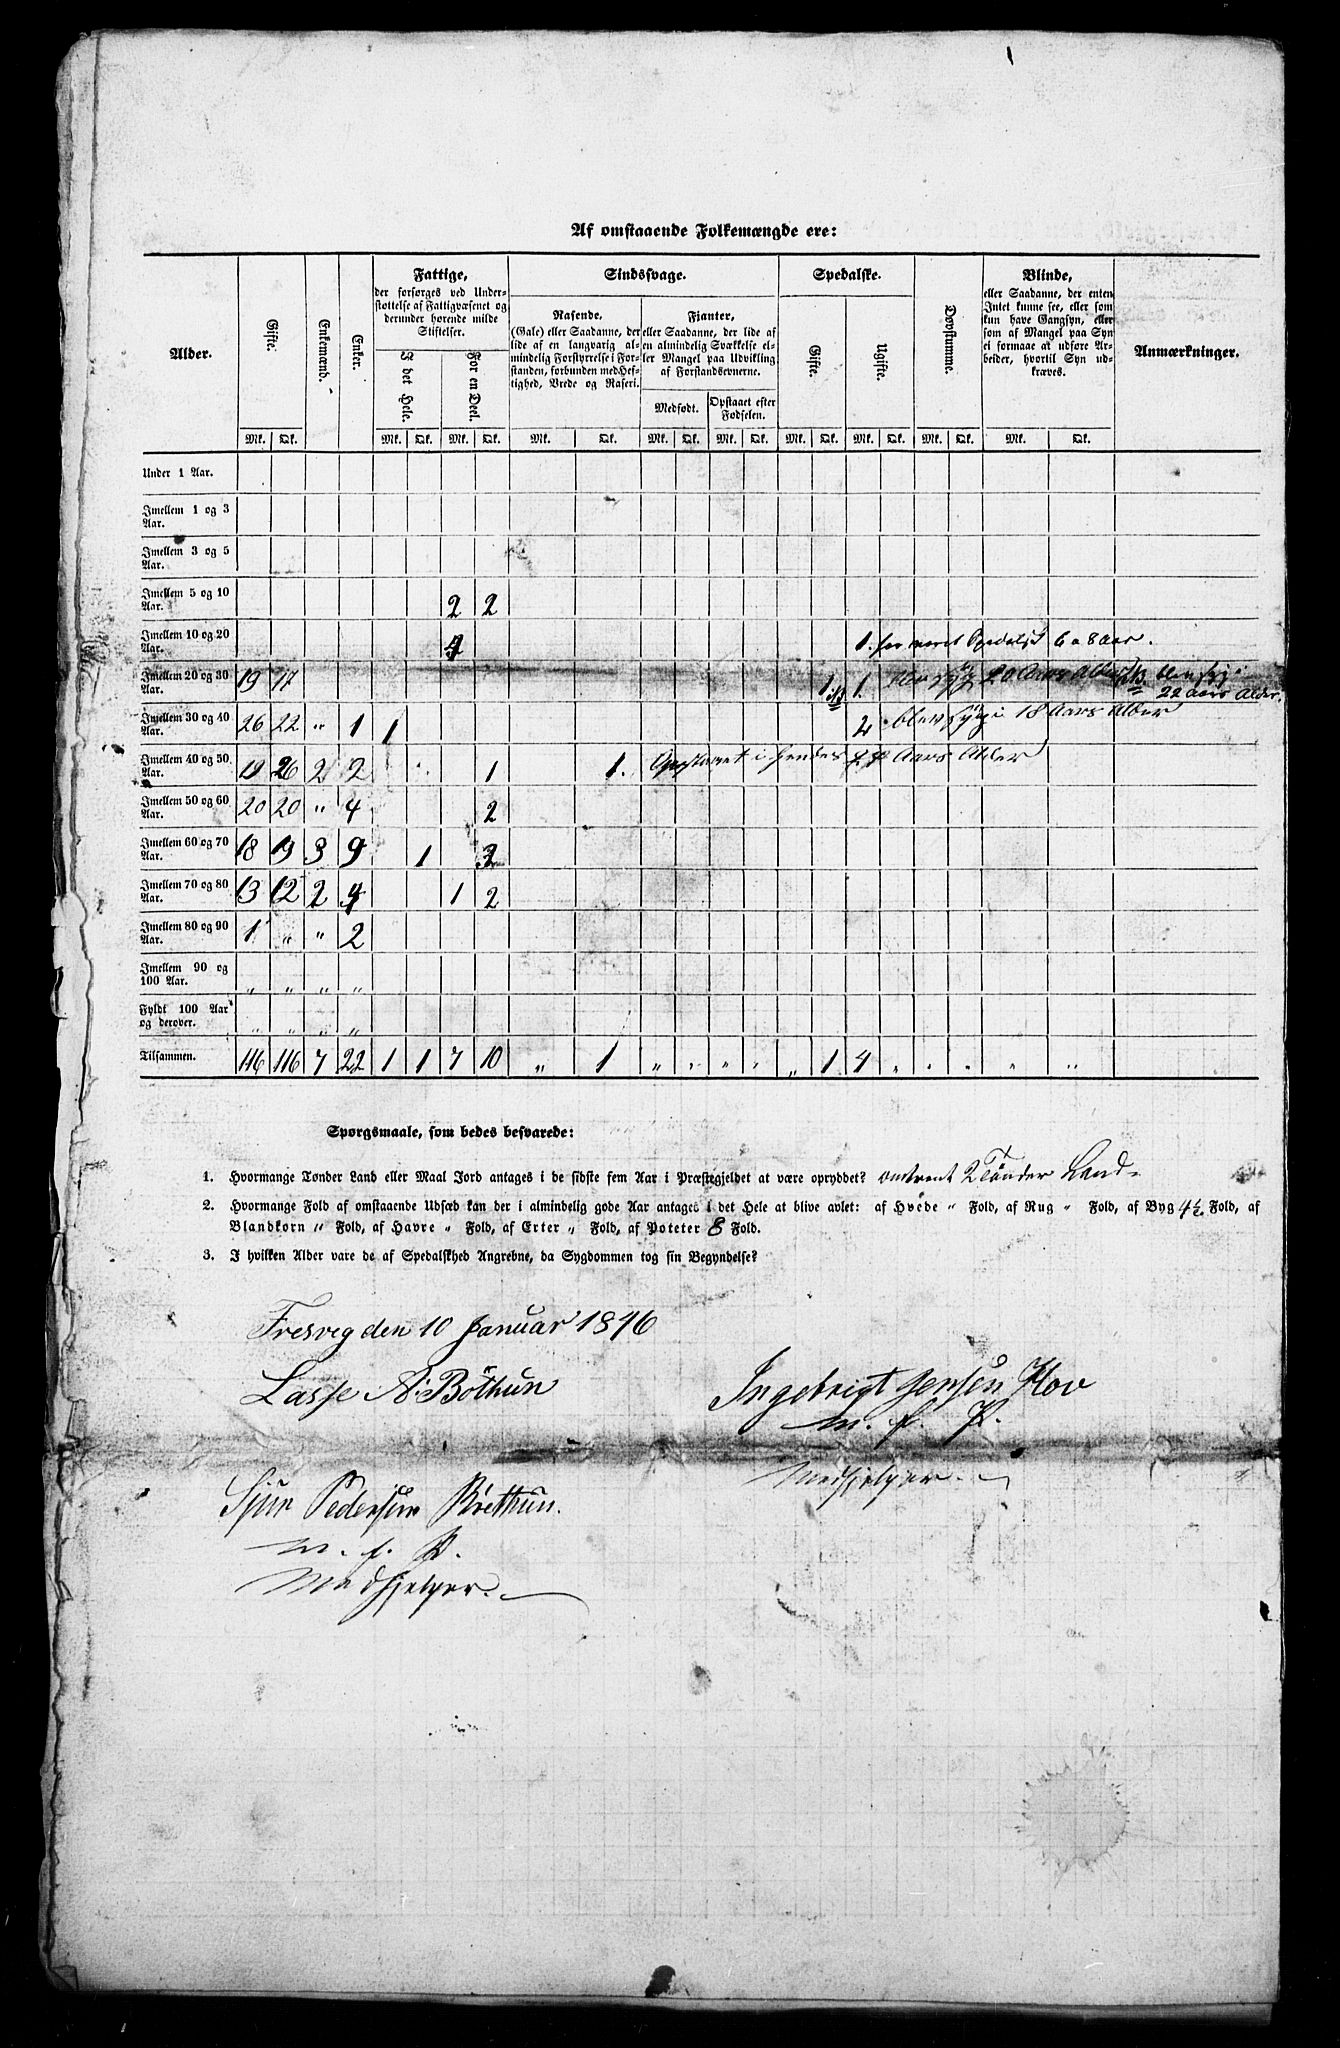 Af omstaaende Folkemængde ere:
Alder. Gifte. Enkemænd. Enker. Fattige, der forsørges ved Under-
støttelse af Fattigvæsenet og
derunder hørende milde
Stiftelser.
I det Hele. For en Deel.
Sindssvage.
Rasende,
(Gale) eller Saadanne, der
lide af en langvarig al-
mindelig Forstyrrelse i For-
standen, forbunden med Hef-
tighed, Vrede og Raseri.
Fianter,
eller Saadanne, der lide af
en almindelig Svækkelse el-
ler Mangel paa Udvikling
af Forstandsevnerne.
Medfødt. Opstaaet efter
Fødselen.
Spedalske.
Gifte. Ugifte.
Døvstumme.
Blinde,
eller Saadanne, der enten
Intet kunne see, eller som
kun have Gangsyn, eller
som af Mangel paa Syn
ei formaae at udføre Ar-
beider, hvortil Syn ud-
kræves.
Anmærkninger.
Mk. Qk. Mk. Qk. Mk. Qk. Mk. Qk. Mk. Qk. Mk. Qk. Mk. Qk. Mk. Qk. Mk. Qk. Mk. Qk.
Under 1 Aar.
Imellem 1 og 3
Aar.
Imellem 3 og 5
Aar.
Imellem 5 og 10
Aar. 2 2
Imellem 10 og 20
Aar. 4 1. har været Spedalsk 6 a 8 Aar.
Imellem 20 og 30
Aar. 19 1 NB 1. blev syg i 20 Aars Alder NB blev syg i
22 Aars Alder.
Imellem 30 og 40
Aar. 26 22 " 1 1 2 blev syg i 18 Aars Alder
Imellem 40 og 50
Aar. 19 26 2 2 1 1. Opstaaet i hendes Aars Alder
Imellem 50 og 60
Aar. 20 20 " 4 2
Imellem 60 og 70
Aar. 18 19 3 9 1 3
Imellem 70 og 80
Aar. 13 12 2 4 1 2
Imellem 80 og 90
Aar. 1 " " 2
Imellem 90 og
100 Aar. " " " "
Fyldt 100 Aar
og derover. " " " "
Tilsammen. 116 116 7 22 1 1 7 10 " 1 " " " " " 1 4 " " " " "
Spørgsmaale, som bedes besvarede:
1. Hvormange Tønder Land eller Maal Jord antages i de sidste fem Aar i Præstegjeldet at være opryddet? omtrent 2 Tønder Land.
2. Hvormange Fold af omstaaende Udsæd kan der i almindelig gode Aar antages i det Hele at blive avlet: af Hvede " Fold, af Rug " Fold, af Byg 4½ Fold, af
Blandkorn " Fold, af Havre " Fold, af Erter " Fold, af Poteter 8 Fold.
3. I hvilken Alder vare de af Spedalskhed Angrebne, da Sygdommen tog sin Begyndelse?
Fresvig den 10 Januar 1846
Lasse A. Bøthun
Ingebrigt Jensen Hov
m. f. P.
Medhjelper.
Sjur Pedersen Bøethun.
m. f. P.
Medhjelper.